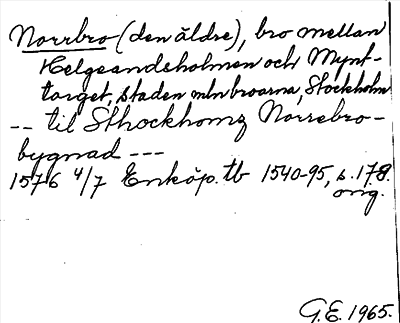 Norrbro (den äldre), bro mellan
Helgeandsholmen och Mynt-
torget, staden mln broarna, Stockholm
-- til Sthockhomz Norrebro-
bygnad ---
1576 4/7 Enköp. tb 1540-95, s. 178.
orig.
G.E. 1965.